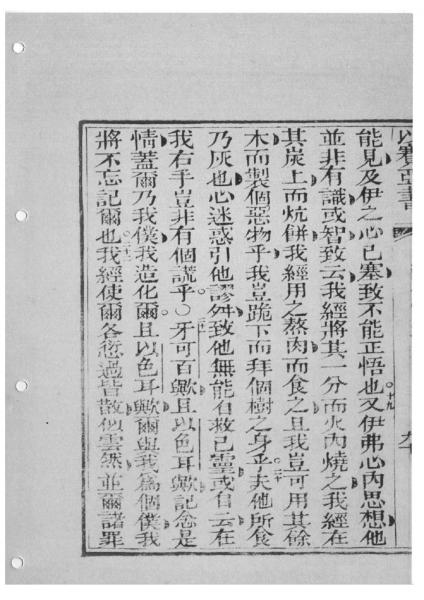 以賽亞書
能見及伊之心已塞致不能正悟也。十九又伊弗心內思想他
並非有識或智致云我經將其一分而火內燒之我經在
其炭上而炕餅我經用之熬肉而食之且我豈可用其餘
木而製個惡物乎我豈跪下而拜個樹之身乎。二十夫他所食
乃灰也心迷惑引他謬舛致他無能自救己靈或自云在
我右手豈非有個謊乎。○二一牙可百歟且以色耳歟記念是
情蓋爾乃我僕我造化爾且以色耳歟爾與我爲個僕我
將不忘記爾也。二二我經使爾各愆過皆散似雲然並爾諸罪